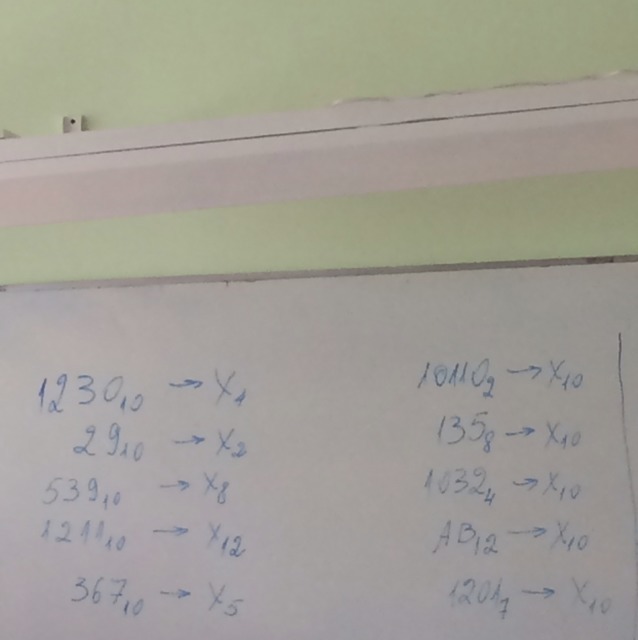 1230₁₀ → X₄
29₁₀ → X₂
539₁₀ → X₈
1211₁₀ → X₁₂
367₁₀ → X₅
10110₂ → X₁₀
135₈ → X₁₀
1032₄ → X₁₀
AB₁₂ → X₁₀
1201₇ → X₁₀